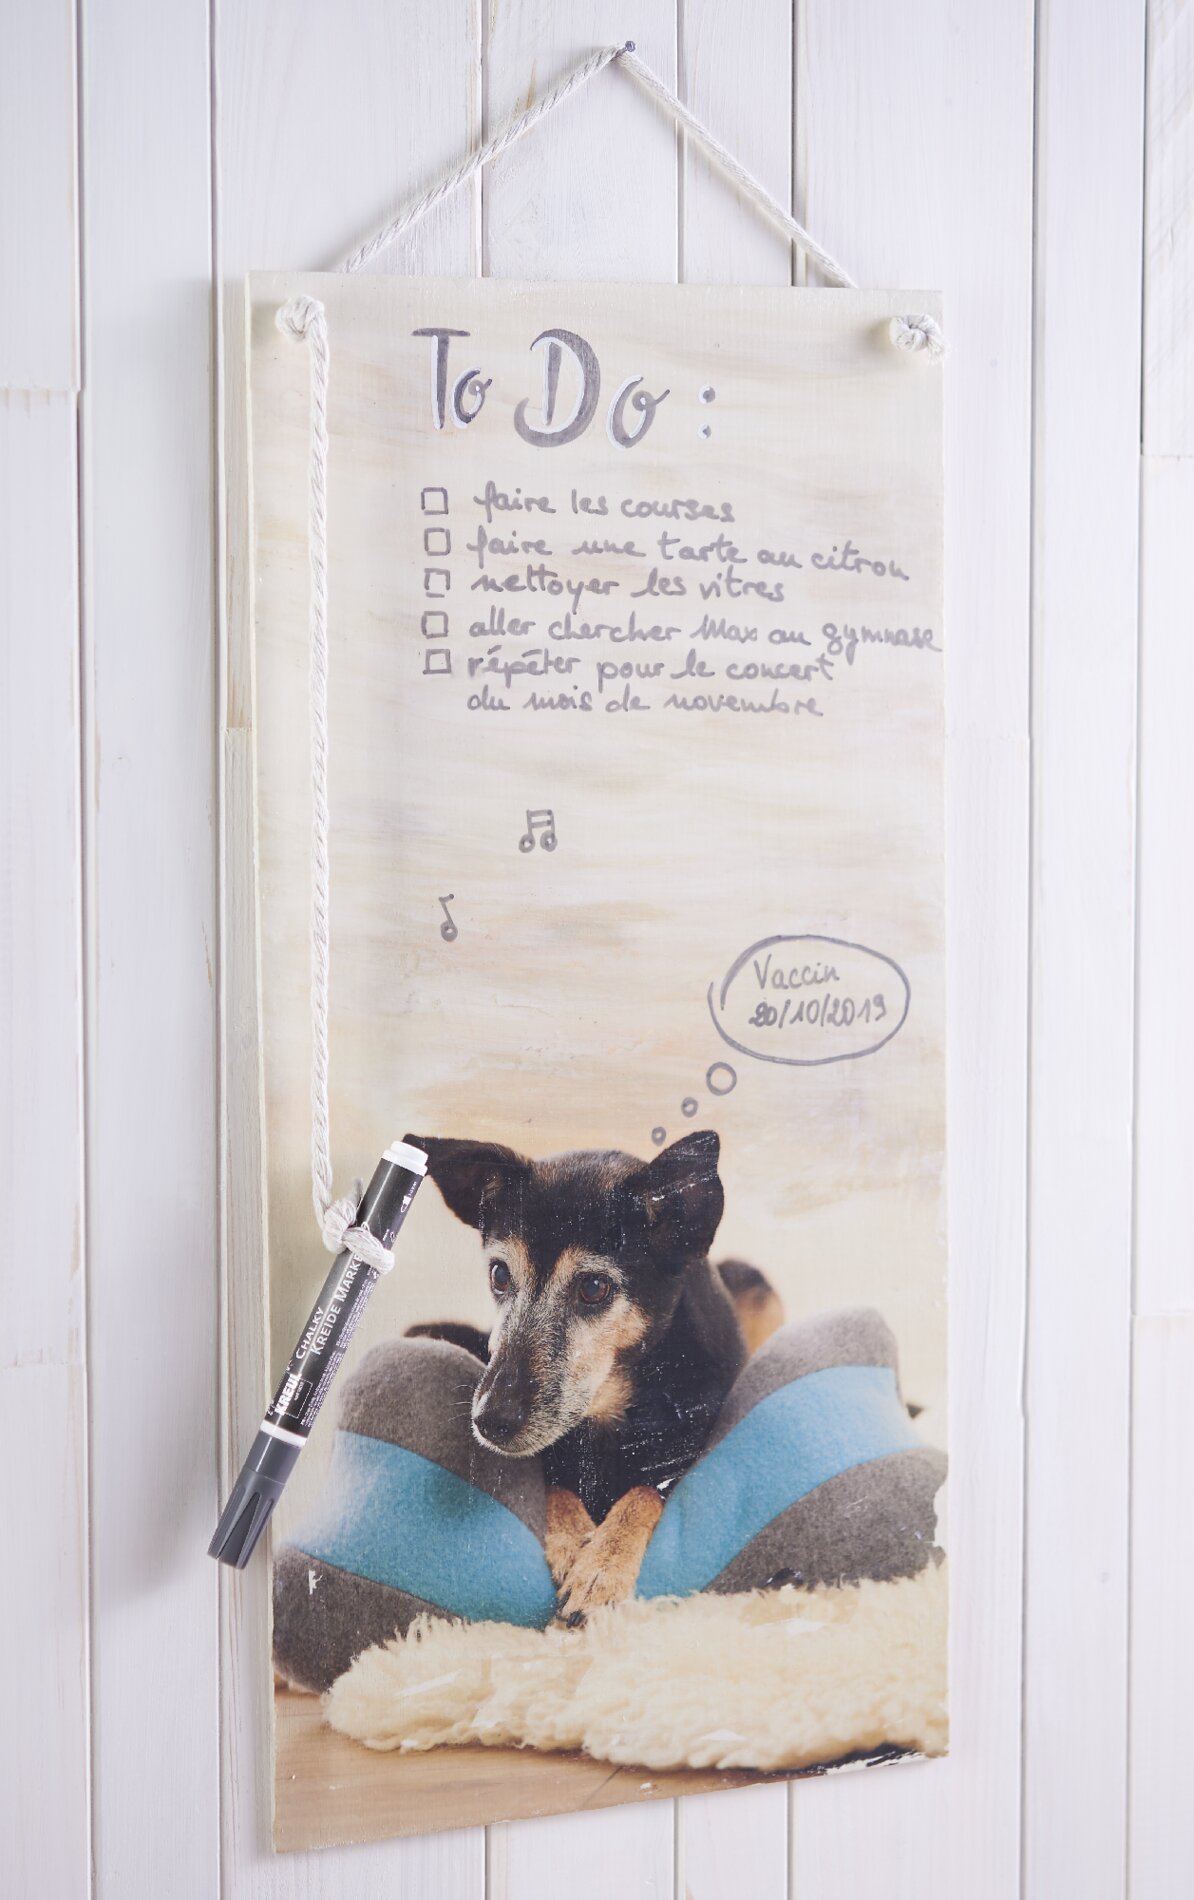 To Do :
faire les courses
faire une tarte au citron
nettoyer les vitres
aller chercher Max au gymnase
répéter pour le concert
du mois de novembre
Vaccin
20/10/2019
KREUL
CHALKY
KREIDE MARKE